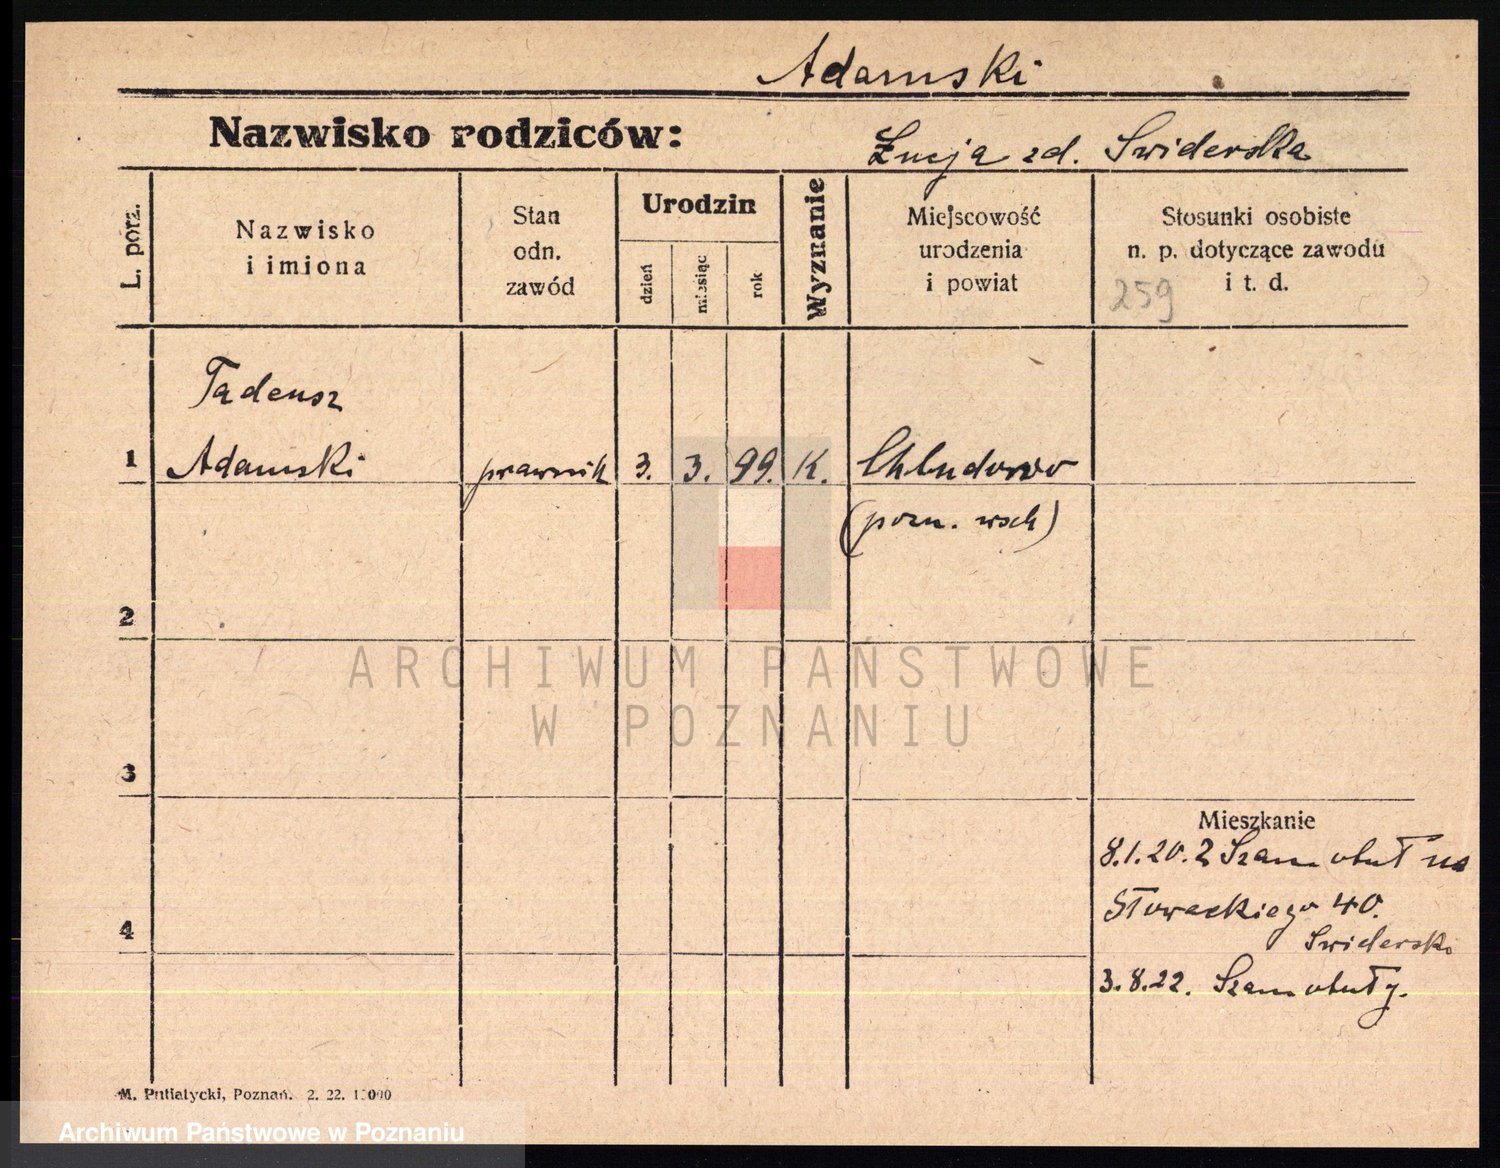 Adamski
Nazwisko rodziców: Łucja zd. Swiderska
L. porz.
Nazwisko
i imiona
Stan
odn.
zawód
Urodzin
dzień
miesiąc
rok
Wyznanie
Miejscowość
urodzenia
i powiat
Stosunki osobiste
n. p. dotyczące zawodu
i t. d.
259
Tadeusz
1 Adamski prawnik 3. 3. 99. K. Chludowo
(pozn. wsch)
2
ARCHIWUM PAŃSTWOWE
W POZNANIU
3
Mieszkanie
8.1.20. z Szamotuł na
Słowackiego 40.
4
Swiderski
3.8.22. Szamotuły.
M. Putiatycki, Poznań. 2. 22. 1
Archiwum Państwowe w Poznaniu